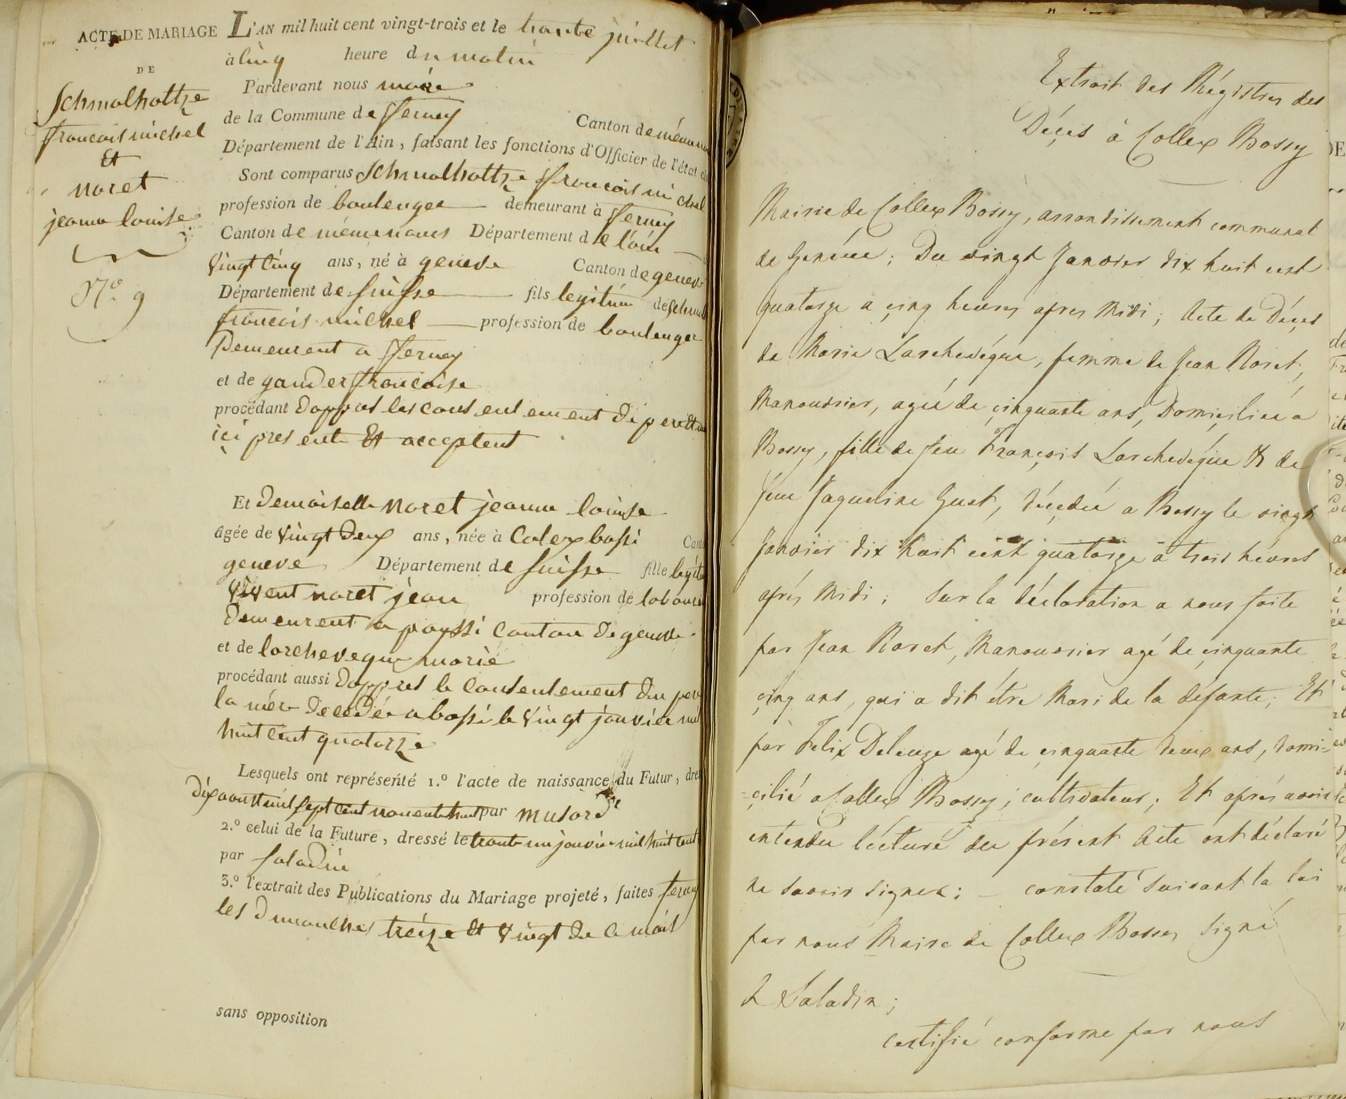 ACTE DE MARIAGE
DE
Schmolholtze
francois michel
Et
Noret
jeanne louise
N.º 9
L'AN mil huit cent vingt-trois et le trante juillet
à cinq heure du matin
Pardevant nous maire
de la Commune de ferney Canton de
Département de l'Ain, faisant les fonctions d'Officier de l'état
Sont comparus Schmolholtze francois michel
profession de boulenger demeurant à ferney
Canton de Département de l'ain
vingt cinq ans, né à geneve Canton de geneve
Département de suisse fils legitim de
francois michel profession de boulenger
Demeurent a ferney
et de francoise
procédant dappres les consentement
ici presente Et acceptent
Et demoiselle Noret jeanne louise
âgée de vingt deux ans, née à Colex bossi
geneve Département de suisse fille
vivent noret jean profession de
demeurent a Canton de geneve
et de larcheveque marie
procédant aussi dappres le Consentement du per
la mère decedée a bossi le vingt janvier mil
huit cent quatorze
Lesquels ont représenté 1.º l'acte de naissance du Futur,
dix aout mil sept cent nonente huit par
2.º celui de la Future, dressé le trante un janvier mil huit cent
par saladin
3.º l'extrait des Publications du Mariage projeté, faites ferney
les dimanches treize et vingt de ce mois
sans opposition
Extrait des Régistres des
Décès à Collex Bossy
Mairie de Collex Bossy, arrondissement communal
de Genève; Du vingt Janvier dix huit cent
quatorze a cinq heures apres Midi; Acte de Décès
de Marie Larchevêque, femme de Jean Noret,
Manouvrier, agée de cinquante ans, Domiciliée a
Bossy, fille de feu François Larchevêque & de
feue Jaqueline Guet, décédée a Bossy le vingt
Janvier dix huit cent quatorze à trois heures
après Midi; Sur la déclaration a nous faite
par Jean Noret, Manouvrier agé de cinquante
cinq ans, qui a dit être Mari de la défunte; Et
par Felix Deleuze agé de cinquante deux ans, domi-
cilié a Collex Bossy, cultivateur; Et après avoir
entendu lecture du présent Acte ont déclaré
ne savoir signer; constaté suivant la loi
par nous Maire de Collex Bossy signé
Saladin;
certifié conforme par nous